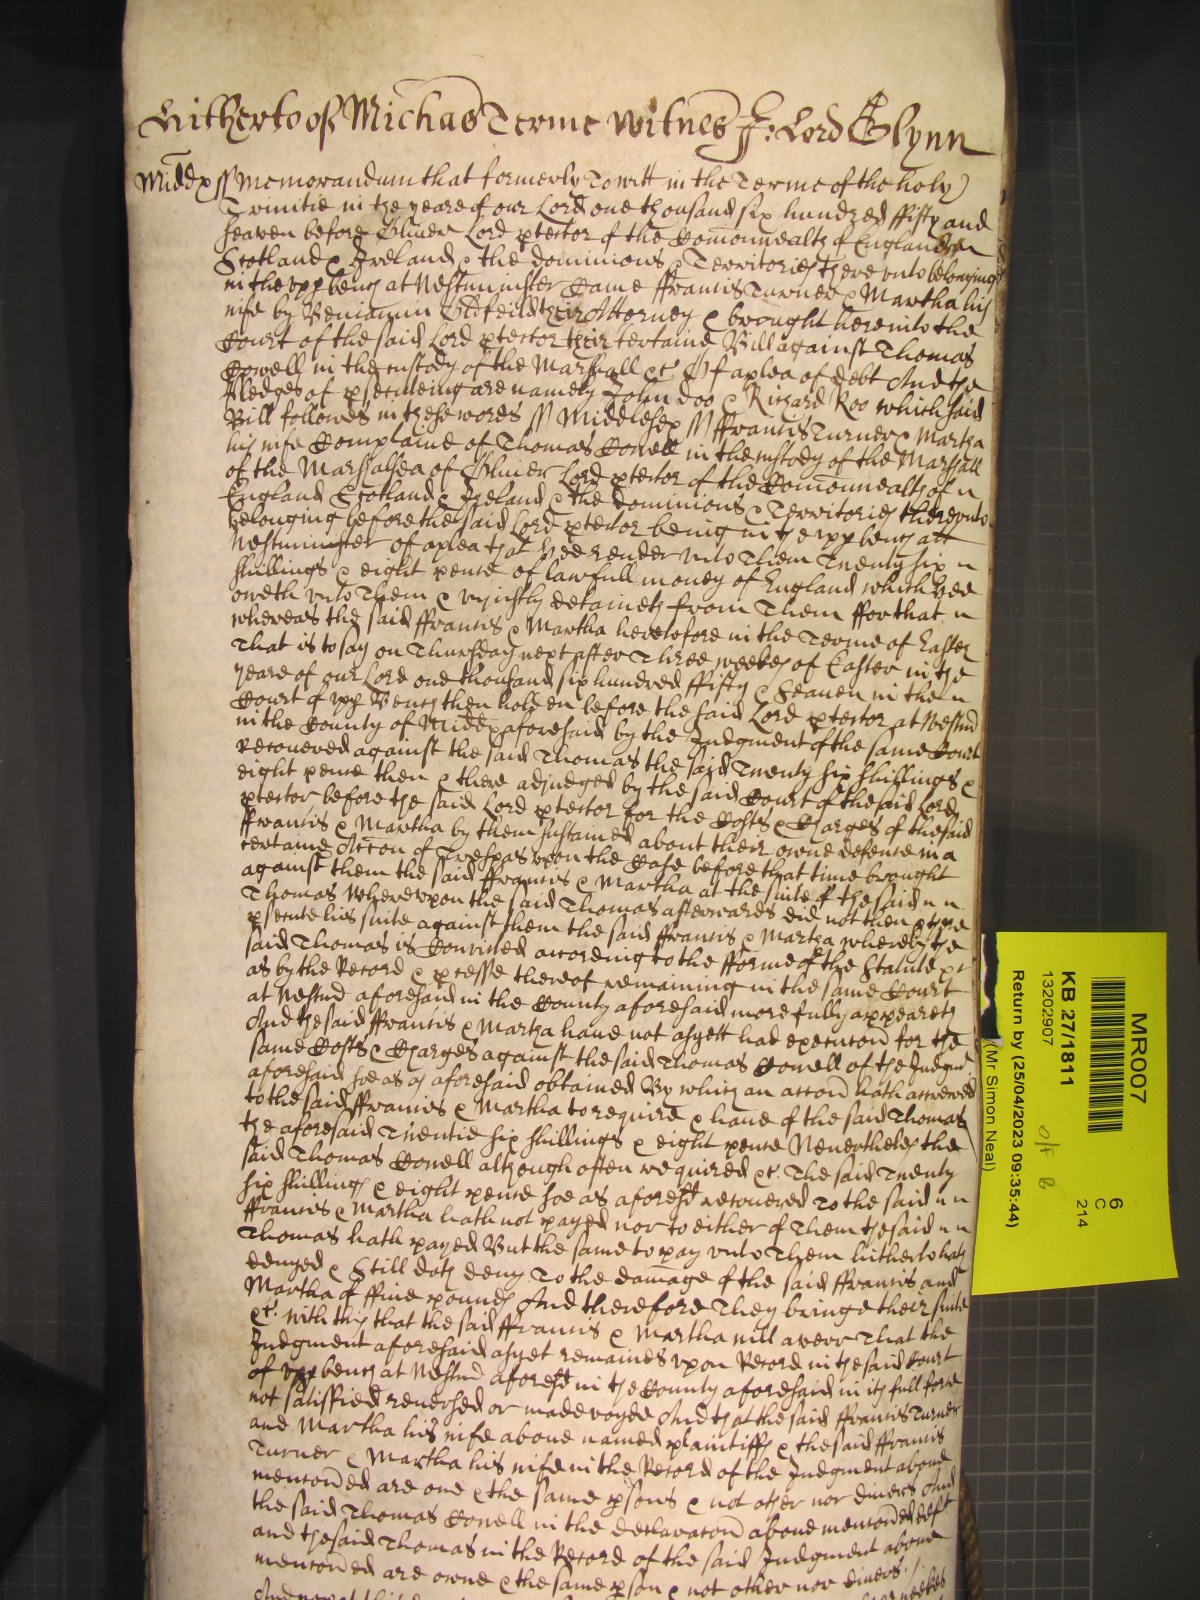 Hitherto of Michās Terme Witnes J: Lord Glynn
Midd͞x ss Memorandum that formerly To witt in the Terme of the holy
Trinitie in the yeare of our Lord one thousand six hundred ffifty and
seaven before Oliver Lord ptector of the Comonwealth of England
Scotland & Ireland & the dominions & Territories there unto belonging
in the upp bench at Westminster Came ffrancis Turner & Martha his
wife by Beniamin Oldfeild their Attorney & brought here into the
Court of the said Lord ptector their certaine Bill against Thomas
Cowell in the custody of the Marshall &c Of a plea of debt And the
Pledges of psecuteing are namely John Doo & Richard Roo which said
Bill followes in these words ss Middlesex ss ffrancis Turner & Martha
his wife Complaine of Thomas Cowell in the custody of the Marshall
of the Marshalsea of Oliver Lord ptector of the Comonwealth of
England Scotland & Ireland & the dominions & Territories thereunto
belonging before the said Lord ptector being in the upp bench att
Westminster of a plea that hee render unto Them Twenty six
shillings & eight pence of lawfull money of England which hee
oweth unto Them & unjustly detaineth from Them ffor that
whereas the said ffrancis & Martha heretofore in the Terme of Easter
That is to say on Thursday next after Three weekes of Easter in the
yeare of our Lord one thousand six hundred ffifty & seaven in the
Court of upp Bench then holden before the said Lord ptector at Westm͞
in the County of Midd͞x aforesaid by the Judgment of the same Court
Recovered against the said Thomas the said Twenty six shillings &
eight pence then & there adjudged by the said Court of the said Lord
ptector before the said Lord ptector for the Costs & Charges of the said
ffrancis & Martha by them sustained about their owne defence in a
certaine Accon of Trespas upon the Case before that time brought
against them the said ffrancis & Martha at the suite of the said
Thomas Whereupon the said Thomas afterwards did not then
psecute his suite against them the said ffrancis & Martha whereby the
said Thomas is Convicted according to the fforme of the Statute &c
as by the Record & pcesse thereof remaining in the same Court
at Westm͞ aforesaid in the County aforesaid more fully appeareth
And the said ffrancis & Martha have not as yett had execucon for the
same Costs & Charges against the said Thomas Cowell of the Judgmt
aforesaid soe as aforesaid obtained By which an accon hath accrewed
to the said ffrancis & Martha to require & have of the said Thomas
the aforesaid Twentie six shillings & eight pence Neverthelesse the
said Thomas Cowell although often required &c The said Twenty
six shillings & eight pence soe as aforesd recovered To the said
ffrancis & Martha hath not payed nor to either of Them the said
Thomas hath payed But the same to pay unto Them hitherto hath
denyed & Still doth deny To the damage of the said ffrancis and
Martha of ffive pounds And therefore They bringe their suite
&c With this that the said ffrancis & Martha will averr That the
Judgment aforesaid as yet remaines upon Record in the said Court
of upp bench at Westm͞ aforesd in the County aforesaid in its full force
not satisfied reversed or made voyde And that the said ffrancis Turner
and Martha his wife above named plaintiffs & the said ffrancis
Turner & Martha his wife in the Record of the Judgment above
menconed are one & the same psons & not other nor divers And
the said Thomas Cowell in the declaracon above menconed deft
and the said Thomas in the Record of the said Judgment above
menconed are owne & the same pson & not other nor divers
MR007
KB 27/1811
13202907
Return by (25/04/2023 09:35:44)
(Mr Simon Neal)
6
C
214